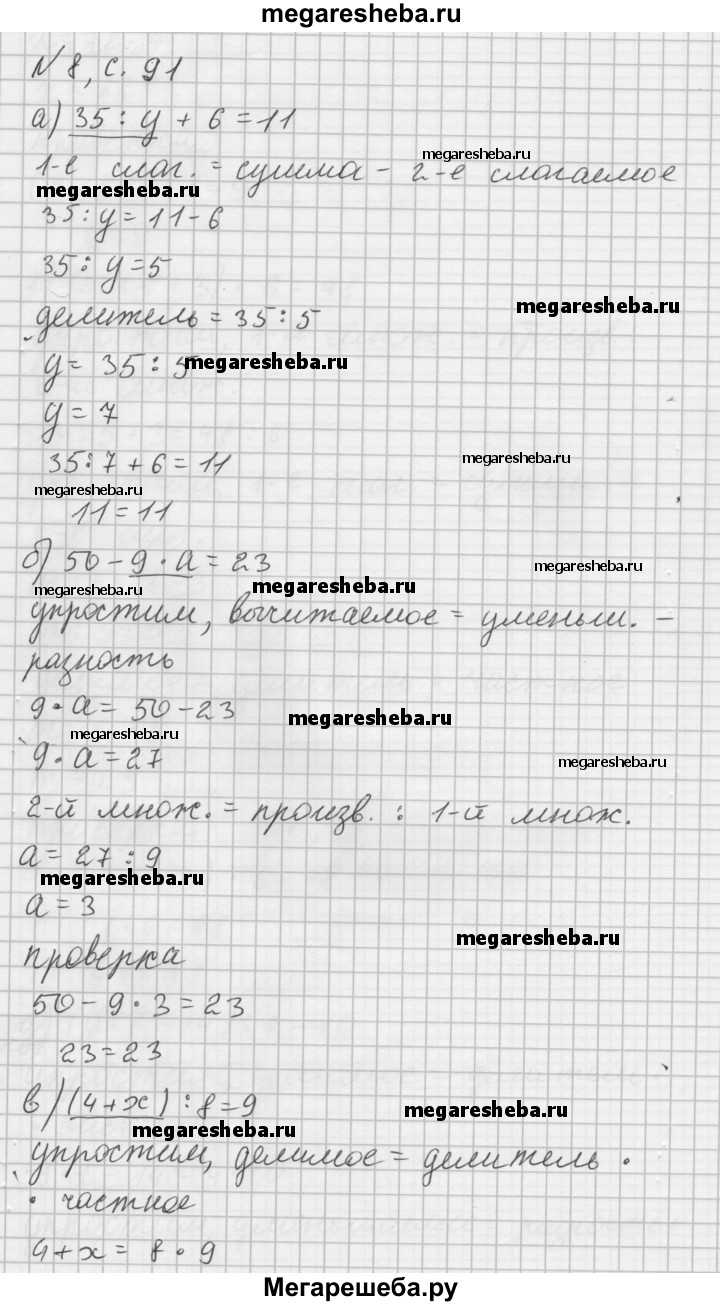 megaresheba.ru
N 8, с. 91
а) 35 : y + 6 = 11
megaresheba.ru
1-е слаг. = сумма - 2-е слагаемое
megaresheba.ru
35 : y = 11 - 6
35 : y = 5
megaresheba.ru
делитель = 35 : 5
y = 35 : 5
megaresheba.ru
y = 7
35 : 7 + 6 = 11
megaresheba.ru
megaresheba.ru
11 = 11
б) 50 - 9 · a = 23
megaresheba.ru
megaresheba.ru
megaresheba.ru
упростим, вычитаемое = уменьш. -
разность
9 · a = 50 - 23
megaresheba.ru
megaresheba.ru
9 · a = 27
megaresheba.ru
2-й множ. = произв. : 1-й множ.
a = 27 : 9
megaresheba.ru
a = 3
megaresheba.ru
проверка
50 - 9 · 3 = 23
megaresheba.ru
23 = 23
в) (4 + x) : 8 = 9
megaresheba.ru
megaresheba.ru
упростим, делимое = делитель ·
· частное
4 + x = 8 · 9
Мегарешеба.ру